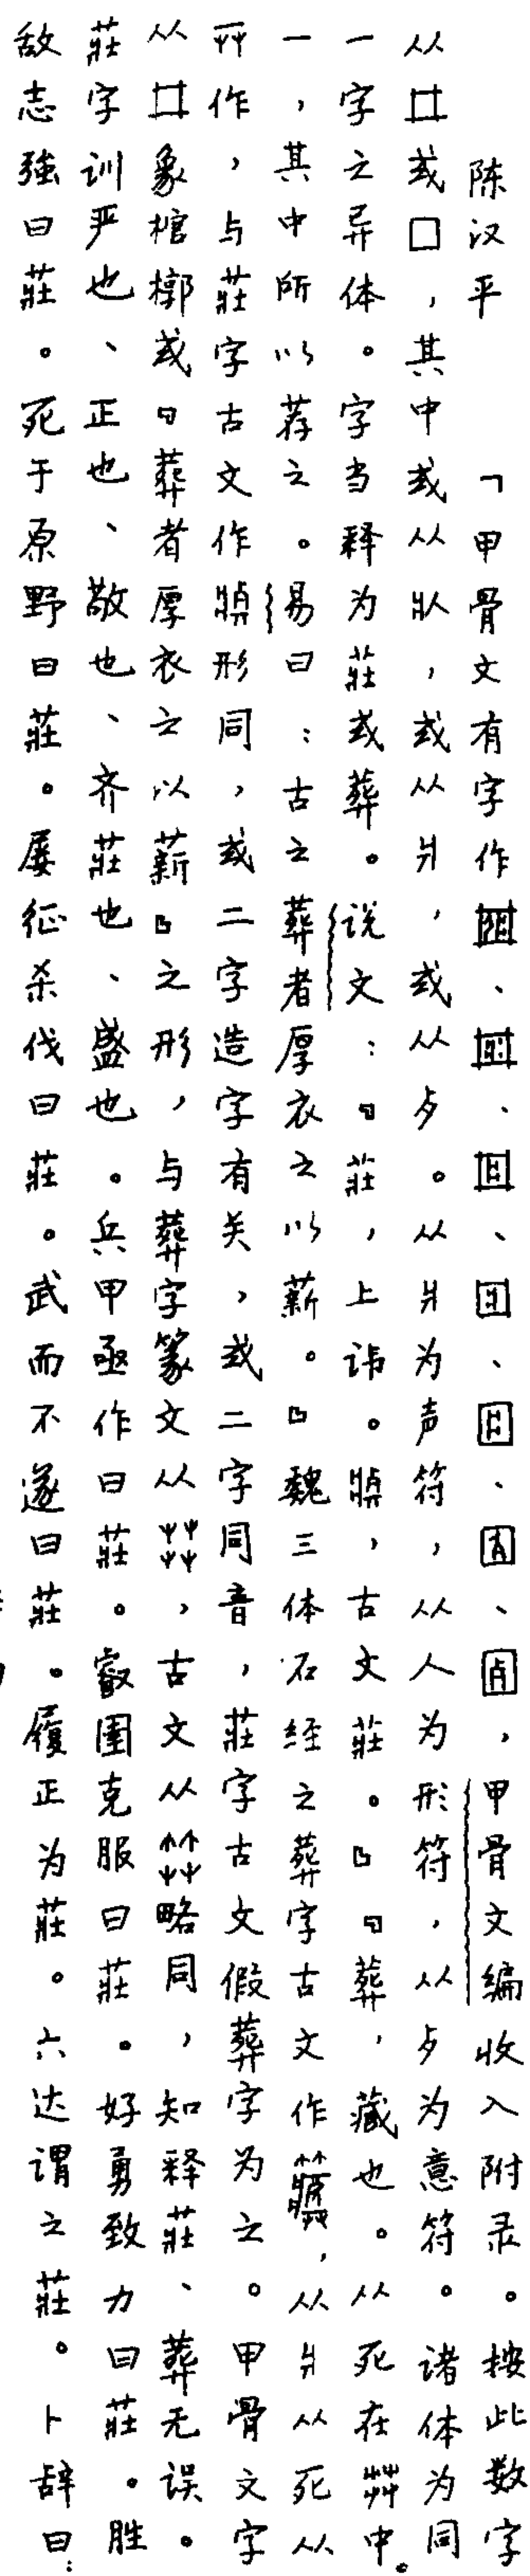 陈汉平 「甲骨文有字作、、、、、、，甲骨文编收入附录。按此数字
从囗或囗，其中或从𤕫，或从爿，或从歺。从爿为声符，从人为形符，从歺为意符。诸体为同
一字之异体。字当释为莊或葬。说文：『莊，上讳。，古文莊。』『葬，藏也。从死在茻中。
一，其中所以荐之。易曰：古之葬者厚衣之以薪。』魏三体石经之葬字古文作，从爿从死从
艸作，与莊字古文作形同，或二字造字有关，或二字同音，莊字古文假葬字为之。甲骨文字
从象棺槨或『葬者厚衣之以薪』之形，与葬字篆文从茻，古文从略同，知释莊、葬无误。
莊字训严也、正也、敬也、齐莊也、盛也。兵甲亟作曰莊。叡圉克服曰莊。好勇致力曰莊。胜
敌志強曰莊。死于原野曰莊。屡征杀伐曰莊。武而不遂曰莊。履正为莊。六达谓之莊。卜辞曰：